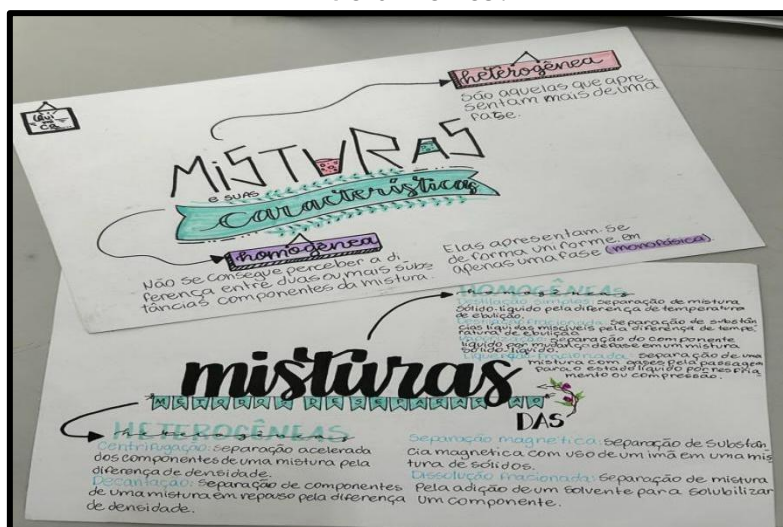 Qui
mi
ca
heterogênea
São aquelas que apre-
sentam mais de uma
fase.
MISTURAS
E SUAS
características
homogênea
Não se consegue perceber a di
ferença entre duas ou mais subs
tâncias componentes da mistura.
Elas apresentam-se
de forma uniforme, em
apenas uma fase (monofásica)
HOMOGÊNEAS
Destilação simples: separação de mistura
sólido-líquido pela diferença de temperatura
de ebulição.
Destilação fracionada: Separação de substân
cias líquidas miscíveis pela diferença de tempe
ratura de ebulição.
separação do componente
líquido por mudança de fase em um mistura
sólido-líquido.
Liquefação fracionada: separação de uma
mistura com gases pela passagem
para o estado líquido por resfria
mento ou compressão.
misturas
MÉTODOS DE SEPARAÇÃO
DAS
HETEROGÊNEAS
Centrifugação: separação acelerada
dos componentes de uma mistura pela
diferença de densidade.
Decantação: separação de componentes
de uma mistura em repouso pela diferença
de densidade.
Separação magnética: separação de substân
cia magnética com uso de um imã em uma mis
tura de sólidos.
Dissolução fracionada: Separação de mistura
Pela adição de um solvente para solubilizar
um componente.